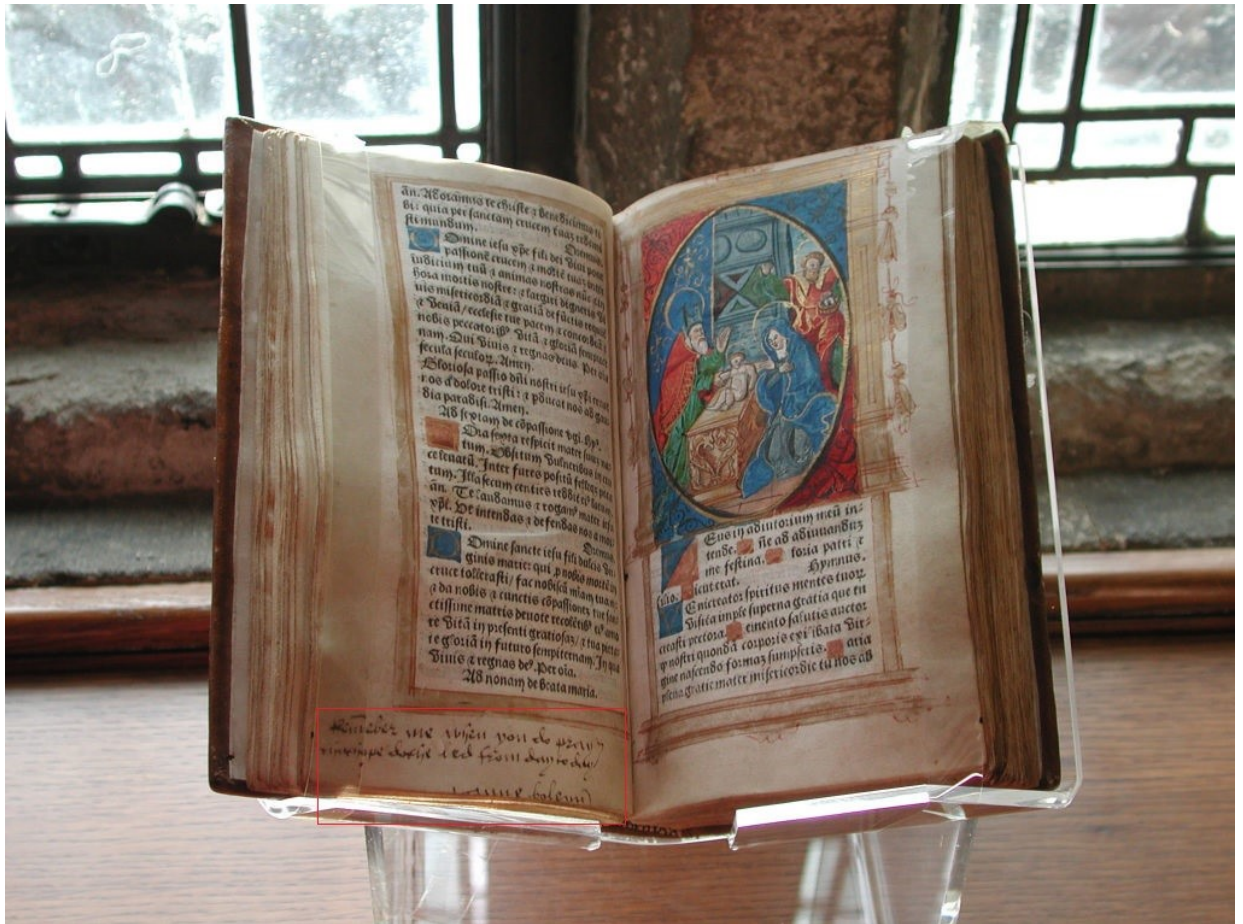 ãn. Adoramus te christe ⁊ benedicimus ti
bi: quia per sanctam crucem tuaz redemi
sti mundum.
Oremus.
Domine iesu xp̃e fili dei viui pone
passionẽ crucem ⁊ mortẽ tuaz inter
iudicium tuũ ⁊ animas nostras nũc ⁊ in
hora mortis nostre: ⁊ largiri digneris vi
uis misericordiã ⁊ gratiã defũctis requiẽ
⁊ veniã / ecclesie tue pacem ⁊ concordiã ⁊
nobis peccatoribꝰ vitã ⁊ gloriã sempiter
nam. Qui viuis ⁊ regnas deus. Per oĩa
secula seculoꝝ. Amen.
Gloriosa passio dñi nostri iesu xp̃i eruat
nos a dolore tristi: ⁊ pducat nos ad gau
dia paradisi. Amen.
Ad sextam de cõpassione vgĩ. Hyꝰ.
Ora sexta respicit mater suuz na
tum. Obsitum vulneribus in cru
ce leuatũ. Inter fures positũ felleqz pota
tum. Illa secum centies
ãn. Te laudamus ⁊ rogamꝰ mater iesu
xp̃i. Ut intendas ⁊ defendas nos a mor
te tristi.
Oremus.
Domine sancte iesu fili dulcis vir
ginis marie: qui p nobis mortẽ in
cruce tollerasti / fac nobiscũ miam tuã
⁊ da nobis ⁊ cunctis cõpassionez tue san
ctissime matris deuote recolẽtibꝰ
te vitã in presenti gratiosaz / ⁊ tua pieta
te gloriã in futuro sempiternam. In qua
viuis ⁊ regnas deꝰ. Per oĩa.
Ad nonam de beata maria.
remeber me when you do pray
hope dothe led from day to day
anne boleyn
Eus in adiutorium meũ in-
tende. ñe ad adiuuanduz
me festina. loria patri ⁊
filio. icut erat. Hymnus.
Eni creator spiritus mentes tuoꝝ
visita imple superna gratia que tu
creasti pectora. emento salutis auctor
ꝙ nostri quondã corporis ex illibata vir-
gine nascendo formaz sumpseris. aria
plena gratie mater misericordie tu nos ab